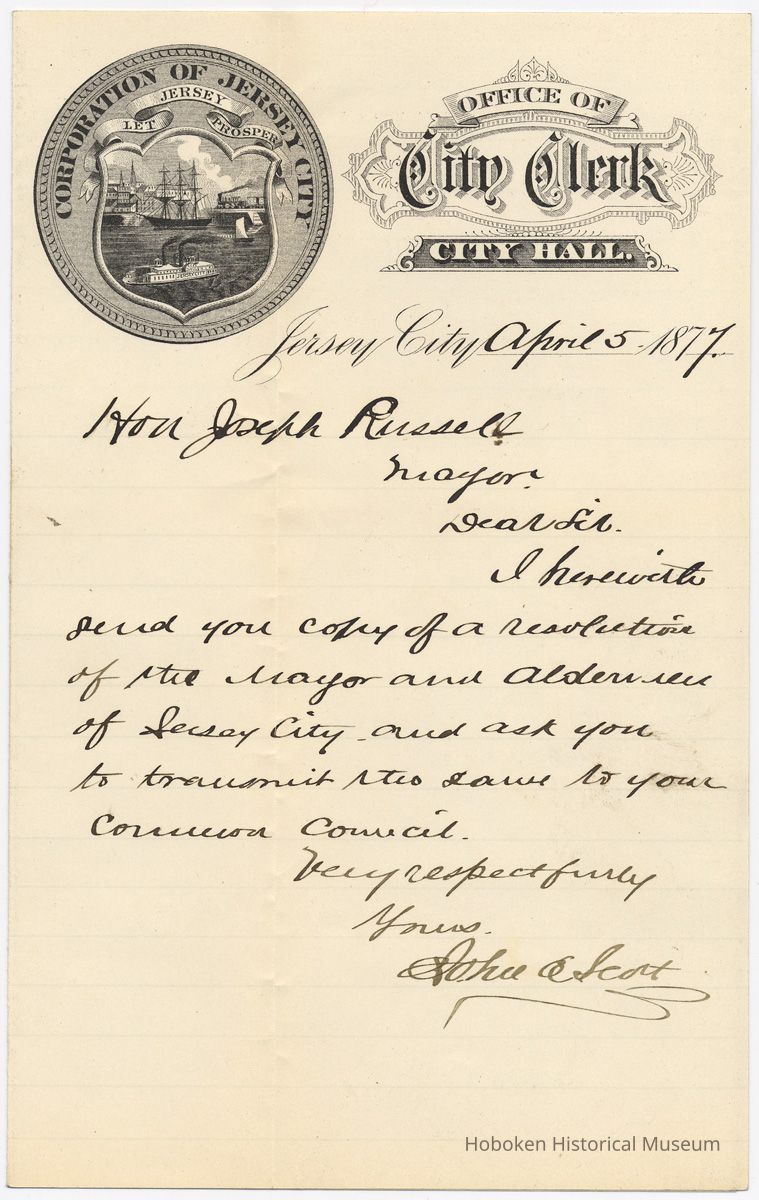 CORPORATION OF JERSEY CITY
LET JERSEY PROSPER
OFFICE OF
City Clerk
CITY HALL.
Jersey City April 5 1877.
Hon Joseph Russell
Mayor.
Dear Sir.
I herewith
send you copy of a resolution
of the Mayor and Aldermen
of Jersey City and ask you
to transmit the same to your
Common Council.
Very respectfully
Yours.
John E Scott
Hoboken Historical Museum